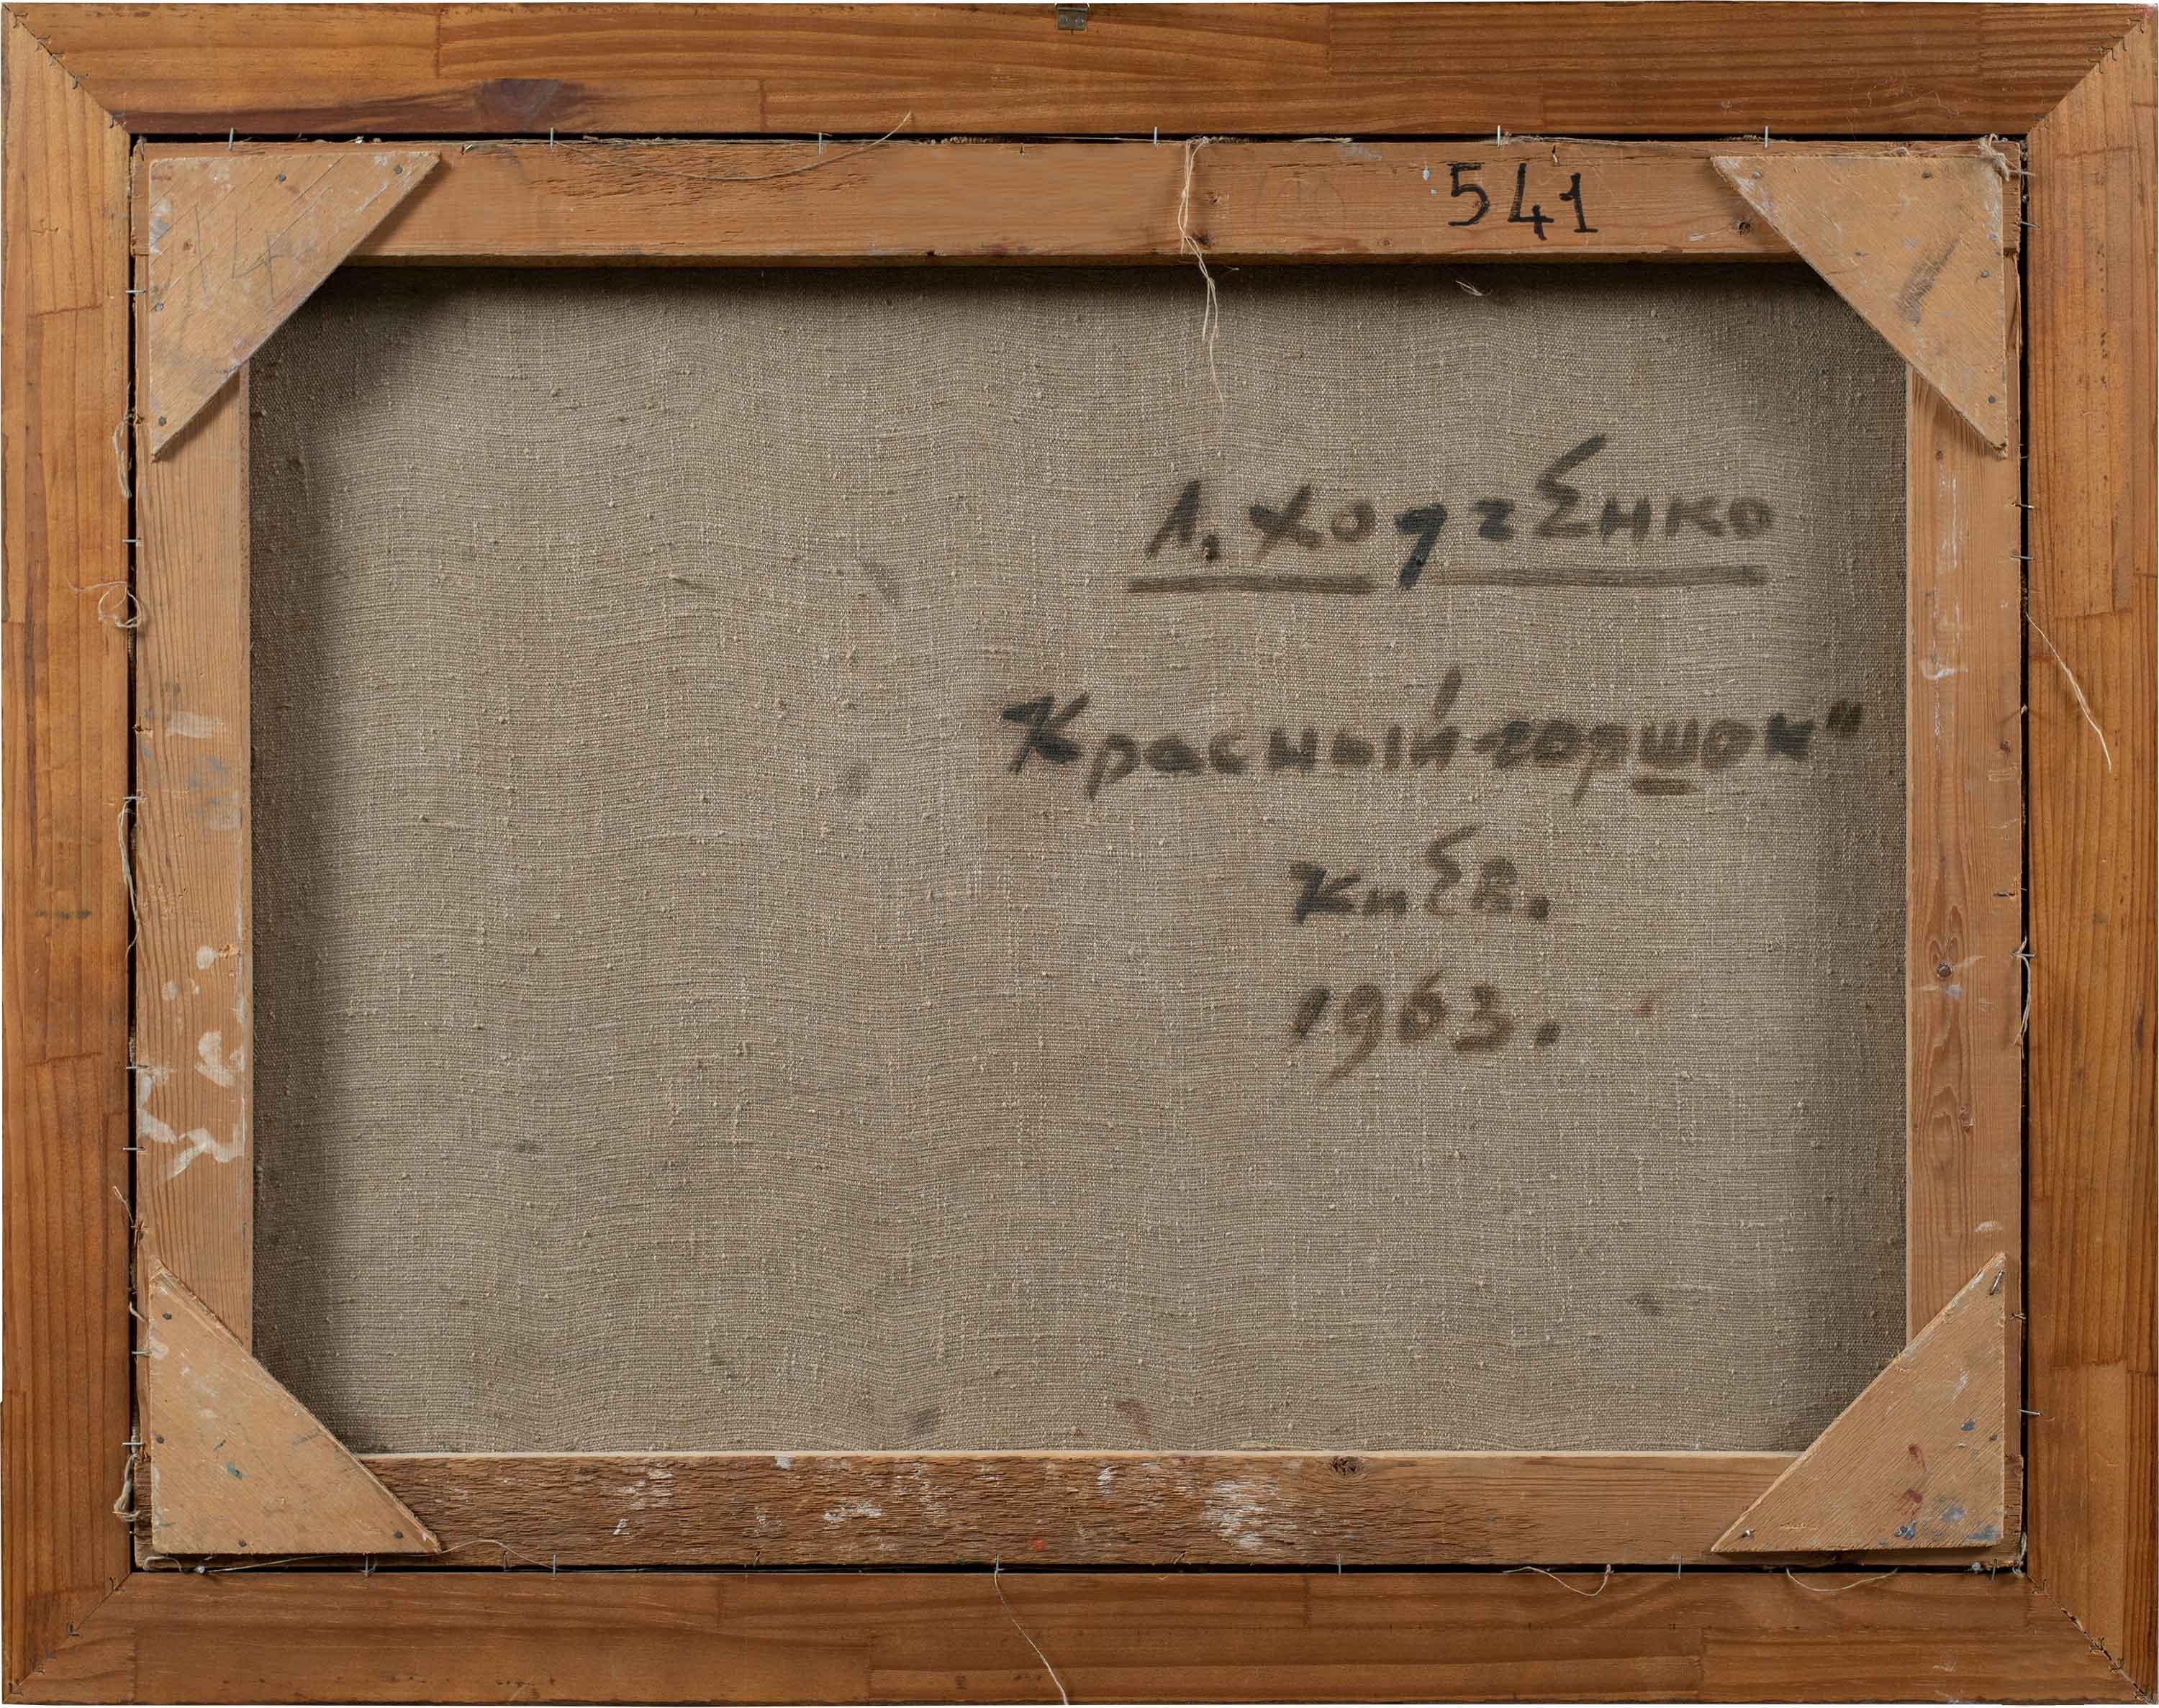 541
Л. ХодчЕнко
"Красный горшок"
КиЕв.
1963.